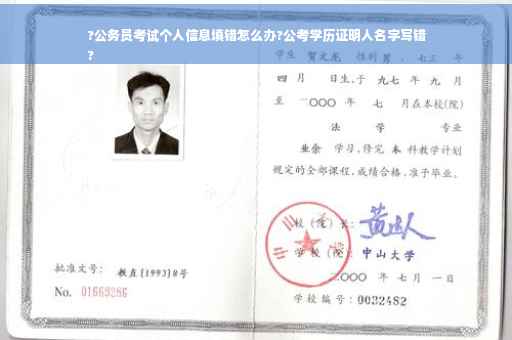 ?公务员考试个人信息填错怎么办?公考学历证明人名字写错
?
学生 贺文龙 性别男 , 七三 年
四 月 日生,于 九七 年 九 月
至 二〇〇〇 年 七 月在本校(院)
法 学 专业
业余 学习,修完 本 科教学计划
规定的全部课程,成绩合格,准予毕业。
校(院)长:
学校(院): 中山大学
二〇〇〇 年 七 月 一 日
学校编号: 0032482
批准文号: 教直[1993]8号
No. 01669286